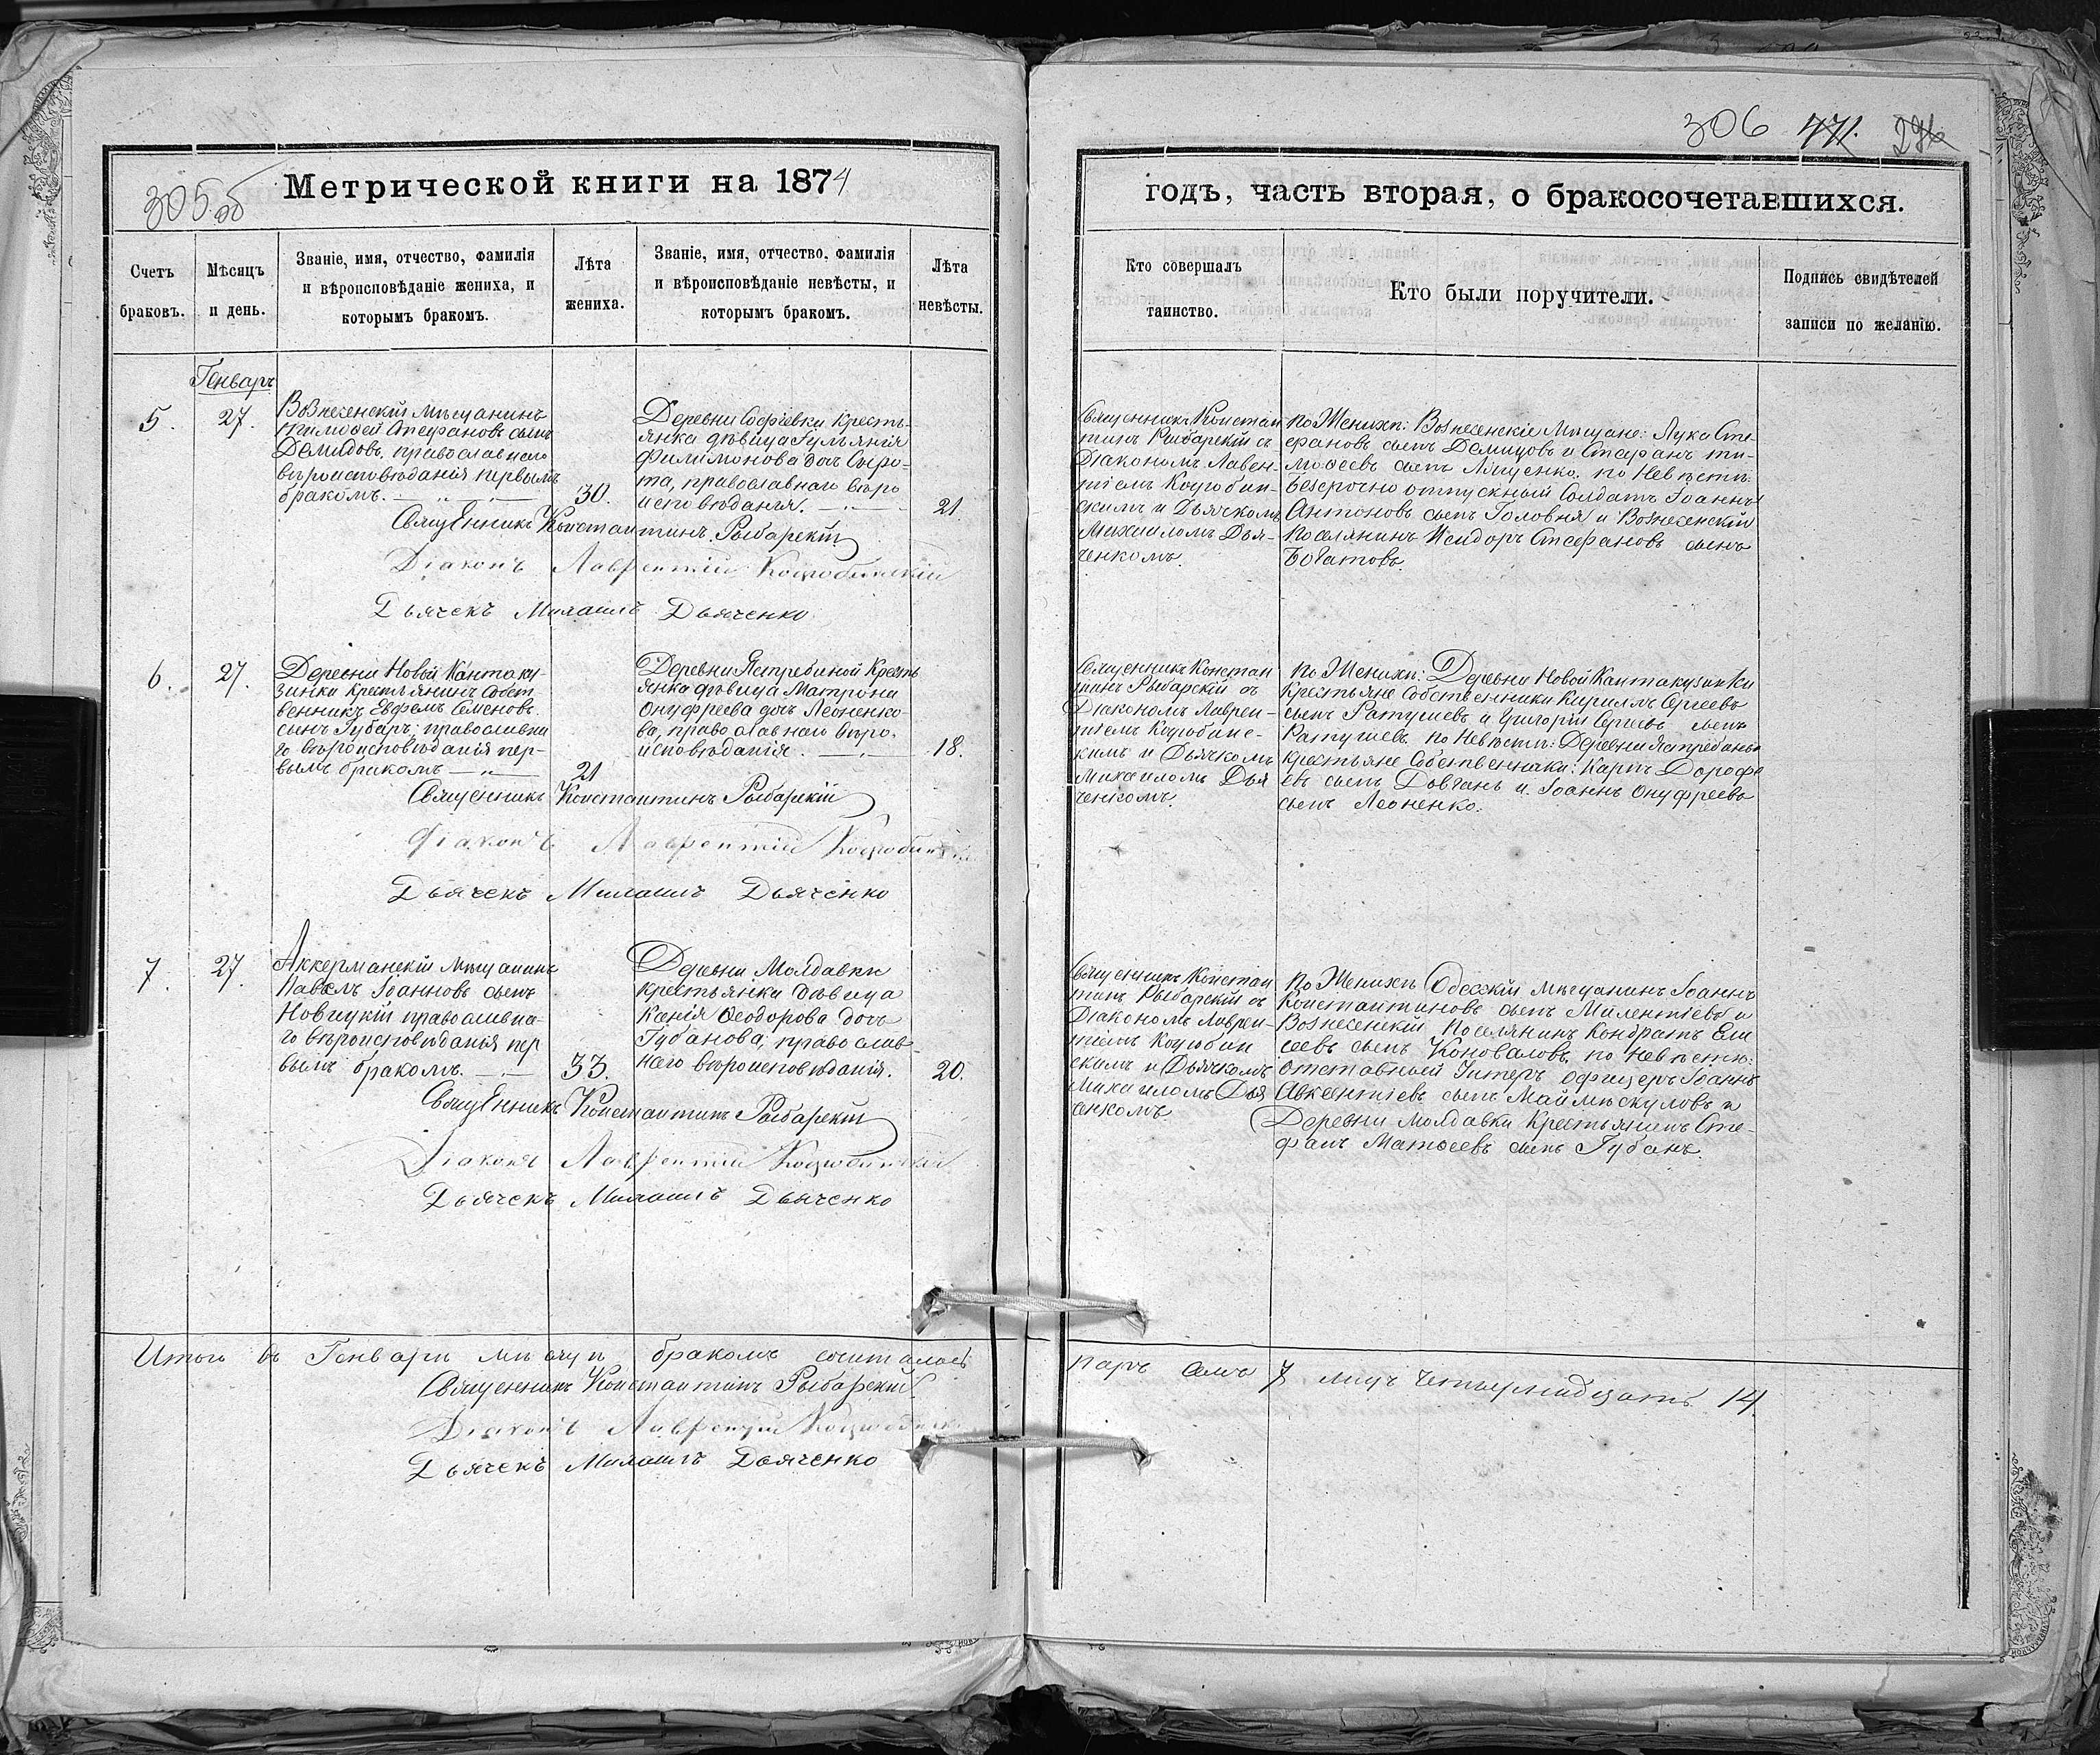 305 об
Метрической книги на 1874
Счетъ браковъ.
Мѣсяцъ и день.
Званіе, имя, отчество, фамилія
и вѣроисповѣданіе жениха, и
которымъ бракомъ.
Лѣта жениха.
Званіе, имя, отчество, фамилія
и вѣроисповѣданіе невѣсты, и
которымъ бракомъ.
Лѣта невѣсты.
Генварь
5.
27.
Вознесенскій Мѣщанинъ
Тимоѳей Стефановъ сынъ
Демидовъ, православнаго
вѣроисповѣданія первымъ
бракомъ.
30.
Деревни Софіевки Кресть-
янка дѣвица Гульянія
Филимонова дочь Сыро-
та, православнаго вѣро
исповѣданія.
21.
Священникъ Константинъ Рыбарскій
Діаконъ Лаврентій Коцюбинскій
Дьячекъ Михаилъ Дьяченко
6.
27.
Деревни Новой Кантаку-
зинки Крестьянинъ Собст
венникъ Евфемъ Семеновъ
сынъ Губарь; православна
го вѣроисповѣданія пер-
вымъ бракомъ
21
Деревни Ястребиной Кресть
янка дѣвица Матрона
Онуфреева дочь Леоненко-
ва, православнаго вѣро-
исповѣданія.
18.
Священникъ Константинъ Рыбарскій
Діаконъ Лаврентій Коцюбинскій
Дьячекъ Михаилъ Дьяченко
7.
27.
Аккерманскій Мѣщанинъ
Павелъ Іоанновъ сынъ
Новицкій православна-
го вѣроисповѣданія пер
вымъ бракомъ.
33.
Деревни Молдавки
крестьянка дѣвица
Ксенія Ѳеодорова дочь
Губанова; православ
наго вѣроисповѣданія.
20.
Священникъ Константинъ Рыбарскій
Діаконъ Лаврентій Коцюбинскій
Дьячекъ Михаилъ Дьяченко
Итого въ Генварѣ мѣсяцѣ бракомъ сочеталось
Священникъ Константинъ Рыбарскій
Діаконъ Лаврентій Коцюбинскій
Дьячекъ Михаилъ Дьяченко
306 471.
годъ, часть вторая, о бракосочетавшихся.
Кто совершалъ таинство.
Кто были поручители.
Подпись свидѣтелей
записи по желанію.
Священникъ Констан
тинъ Рыбарскій съ
Діакономъ Лавен-
тіемъ Коцюбин-
скимъ и Дьячкомъ
Михаиломъ Дья-
ченкомъ.
по Женихѣ: Вознесенскіе Мѣщане: Лука Сте-
фановъ сынъ Демидовъ и Стефанъ Ти-
моѳеевъ сынъ Ляшенко, по Невѣстѣ:
безсрочно отпускный Солдатъ Іоаннъ
Антоновъ сынъ Головня и Вознесенскій
поселянинъ Исидоръ Стефановъ сынъ
Богатовъ.
Священникъ Констан
тинъ Рыбарскій съ
Діакономъ Лаврен-
тіемъ Коцюбинс-
кимъ и Дьячкомъ
Михаиломъ Дья
ченкомъ.
по Женихѣ: Деревни Новой Кантакузинки
Крестьяне Собственники Кириллъ Сергеевъ
сынъ Ратушевъ и Григорій Сергеевъ сынъ
Ратушевъ, по Невѣстѣ: Деревни Ястребиной
крестьяне Собственники: Карпъ Дорофе
евъ сынъ Довгань и Іоаннъ Онуфреевъ
сынъ Леоненко.
Священникъ Констан
тинъ Рыбарскій съ
Діакономъ Лаврен-
тіемъ Коцюбин
скимъ и Дьячкомъ
Михаиломъ Дья
ченкомъ
по Женихѣ Одесскій мѣщанинъ Іоаннъ
Константиновъ сынъ Милентіевъ и
Вознесенскій поселянинъ Кондратъ Ели
сеевъ сынъ Коноваловъ, по невѣстѣ:
отставной Унтеръ офицеръ Іоаннъ
Авксентіевъ сынъ Маймѣскуловъ и
Деревни Молдавки Крестьянинъ Сте-
фанъ Матѳеевъ сынъ Губанъ.
паръ семь 7, лицъ четырнадцать 14.